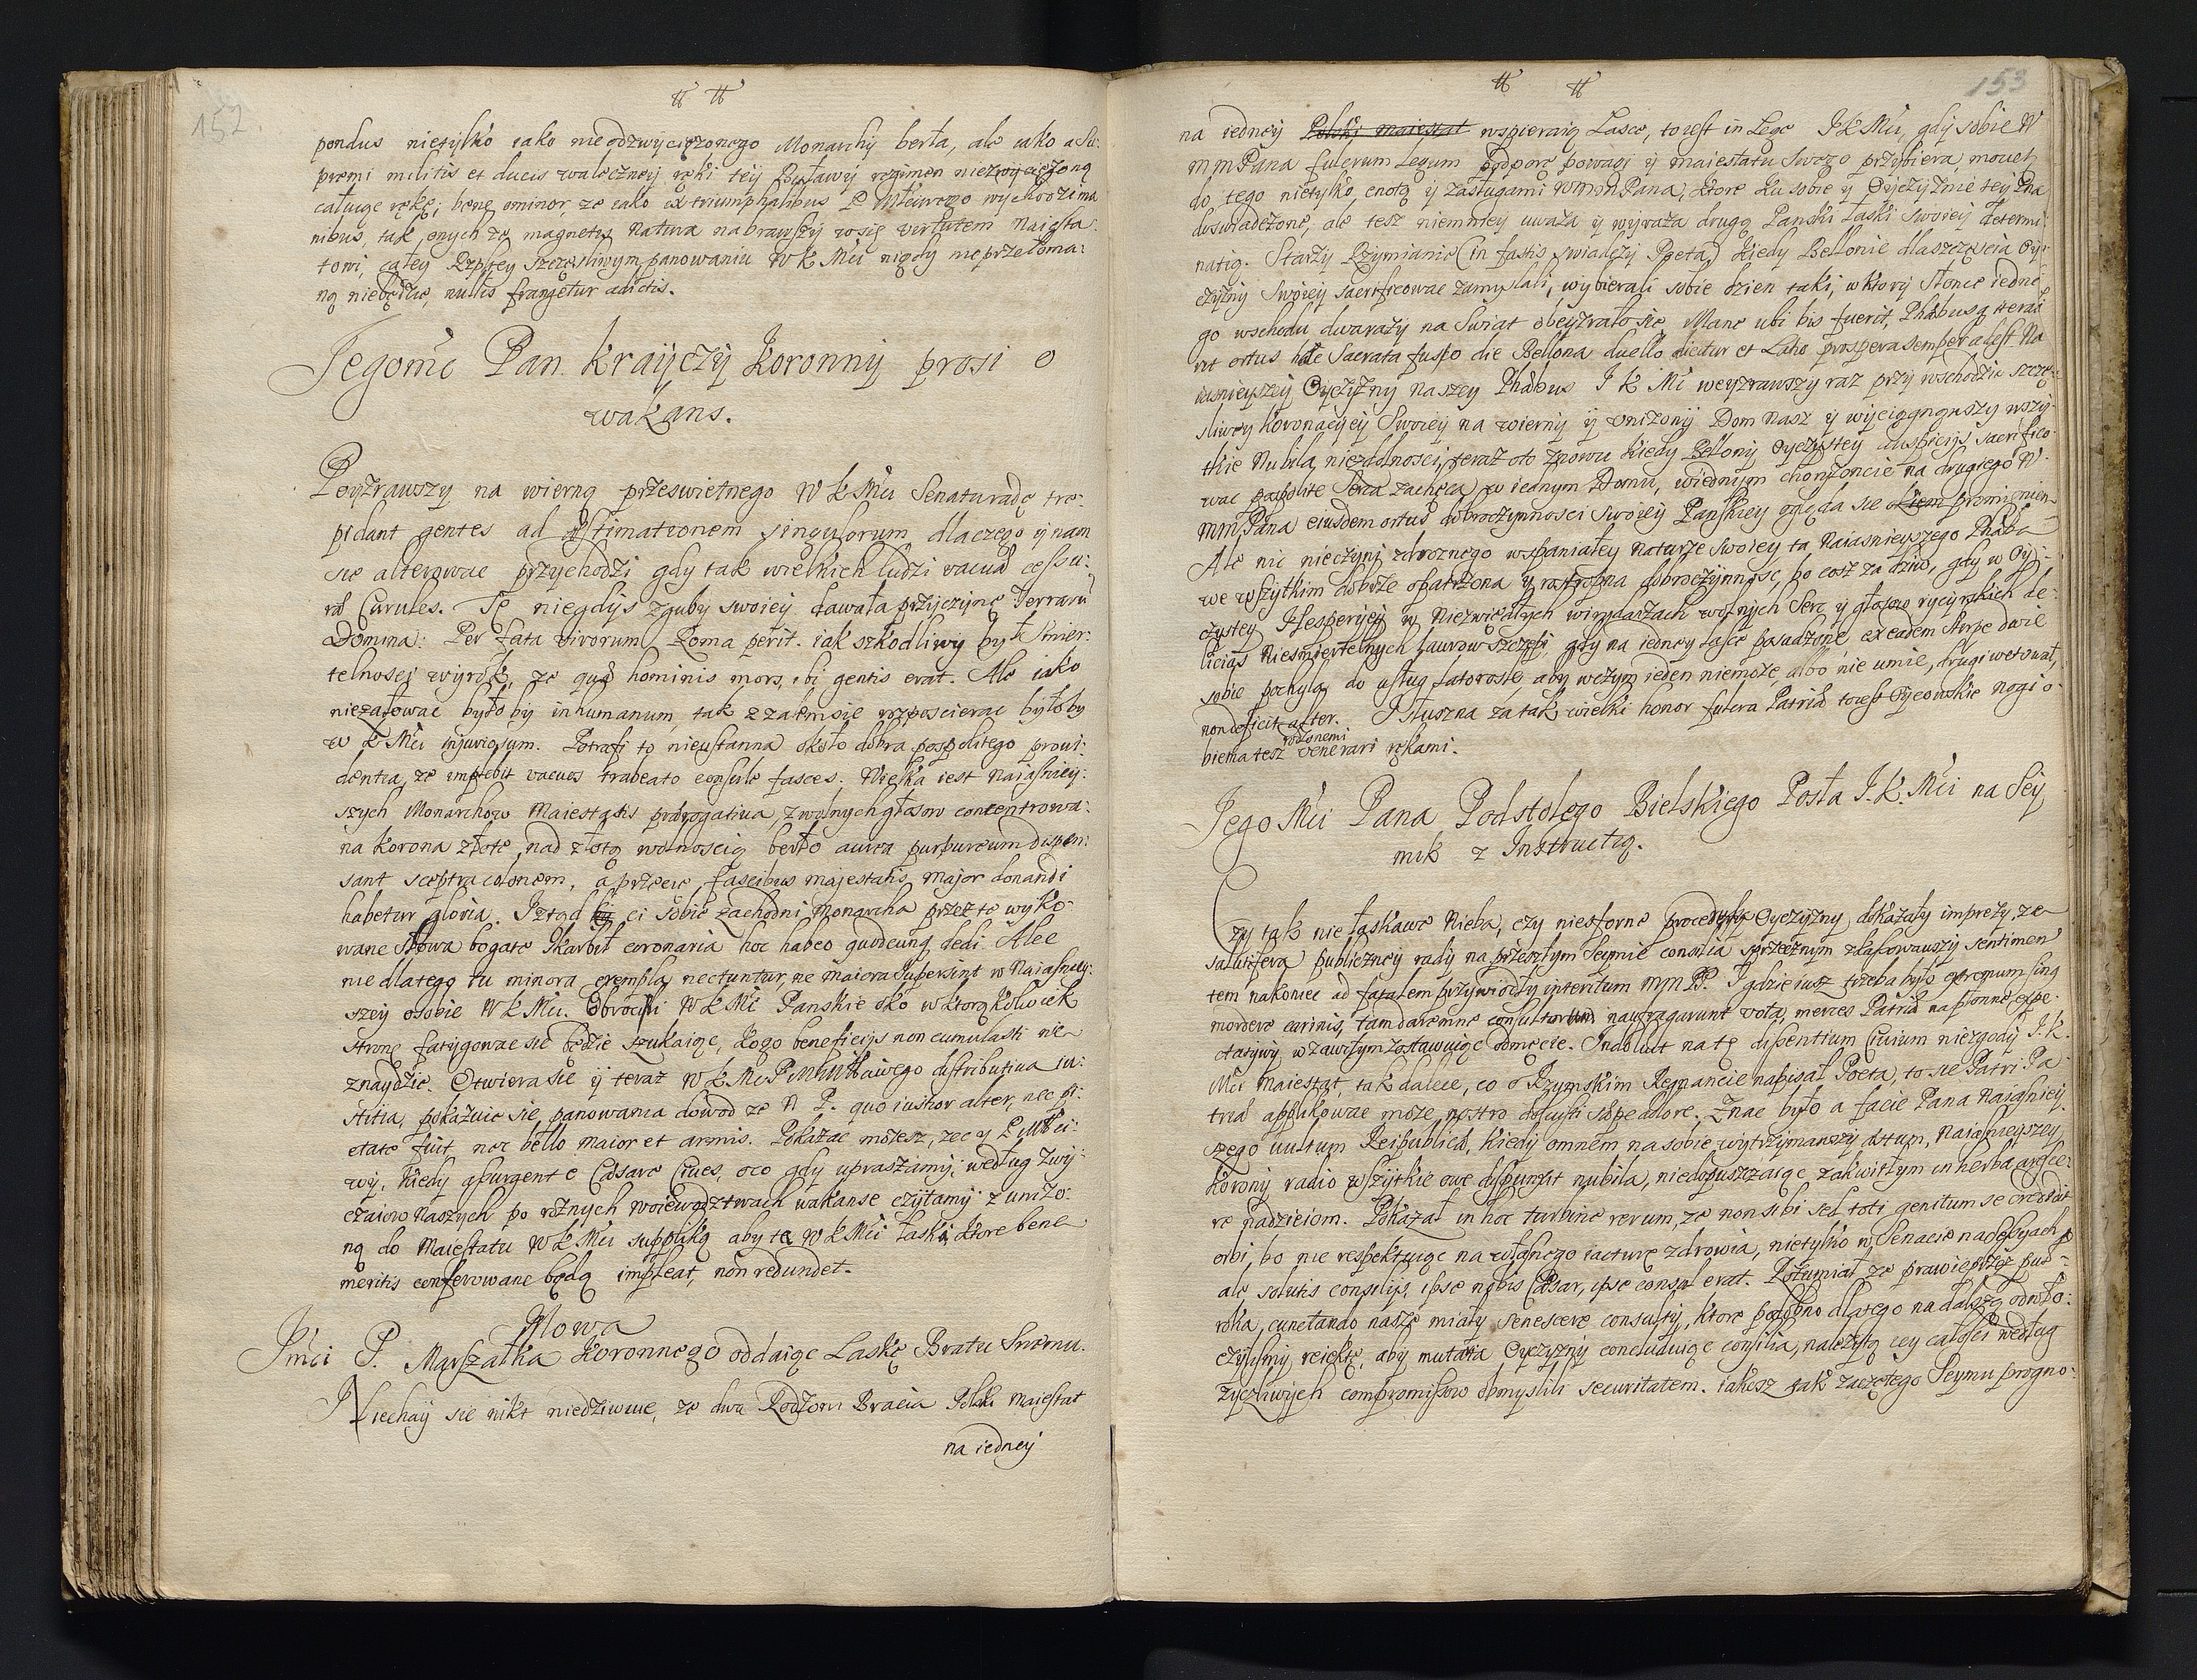 152
pondus nietylko iako niezwyciężonego Monarchij berła, ale iako a Su:
premi militis et ducis waleczney ręki tey Buławy regimen niezwyciężoną
całuię rękę; bene ominor, ze iako ex triumphalibus
nibus, tak onych ze magnetis Natura nabrawszy w się virtutem Maiesta:
towi, całey Rzpltey szczęsliwym panowaniu W K Mći nigdy nieprzełoma:
ną niebędzie, nullis frangetur adictis.
Jegomć Pan Krayczy Koronny prosi o
wakans.
Poyzrawszy na wierną przeswietnego W K Mći Senatu radę tre:
pidant gentes ad æstimationem singulorum dlaczego y nam
się alterowac przychodzi gdy tak wielkich ludzi vacuæ cessu:
ræ Curules. Tę niegdys zguby swoiey dawała przyczynę Terraru
Domina: Per fata virorum Roma perit. iak szkodliwy był Smier:
telnosci wyrok, ze quæ hominis mors, ibi gentis erat. Ale iako
nieżałowac było by inhumanum, tak z zalem się rozposcierac było by
W K Mći injuriosum. Potrafi to nieustanna około dobra pospolitego provi:
dentia, ze implebit vacuos trabeato consule fasces. Wielka iest Naiasniey:
szych Monarchow Maiestatis prærogatiua, z wolnych głosow concentrowa:
na Korona złote, nad złotą wolnoscią berło aurea purpureum dispen:
sant sceptra colonem, a przecie fascibus majestatis major donandi
habetur gloria. Ztąd ci sobie zachodni Monarcha przez te wyko:
wane słowa bogate Skarbił coronaria hoc habeo quodcunq dedi. Alec
nie dlatego tu minora exempla nectuntur, ne maiora supersint w Naiasniey:
szey osobie W K Mći. Obroci li W K Mć Panskie oko w ktorąkolwiek
stronę fatygowac się będzie szukaiąc, kogo beneficijs non cumulasti nie
znaydzie. Otwiera się y teraz W K Mći P M M Miłosciwego distributiua iu:
stitia, pokazuie się panowania dowod ze N P. quo iustior alter, nec pi:
etate fuit, nec bello maior et armis. Pokazac możesz, zec y
wy, kiedy assurgent e Cæsare Ciues, oco gdy upraszamy, według zwy:
czaiow Naszych po roznych woiewodztwach wakanse czytamy z unizo:
ną do Maiestatu W K Mći suppliką aby te W K Mći łaski, ktore bene
meritis conferowane będą impleat, non redundet.
Mowa
Jmći P. Marszałka Koronnego oddaiąc Laskę Bratu Swemu.
Niechay się nikt niedziwuie, ze dwa Rodzeni Bracia Polski Maiestat
na iedney
153
na iedney Polski maiestat wspieraią Lasce, to iest in Lege J K Mći, gdy sobie W
M M Pana fulcrum Legum podporę powagi y maiestatu Swego przybiera mouet
do tego nietylko cnotą y zasługami W M M Pana, ktore ku sobie y Oyczyznie tey zna
doswiadczone, ale tesz niemniey uwaza y wyraza drugą Panski łaski Swoiey determi
natią. Starzy Rzymianie (in fastis swiadczy Poeta) kiedy Bellonie dla szczęscia Oy:
czyzny Swoiey sacrificowac zamyslali, wybierali sobie dzien taki, w ktory Słonce iedne
go wschodu dwa razy na Swiat obeyzrało się. Mane ubi bis fuerit, Phæbusq iterat
rit ortus hac Sacrata fuso die Bellona duello dicitur et Latio prospera semper adest. Na
iasnieyszey Oyczyzny naszey Phæbus J K Mć weyzrawszy raz przy wschodzie szczę:
sliwey Koronacyey Swoiey na wierny y unizony Dom Nasz y wyciągnąwszy wszy:
tkie Nubila niezdolnosci, teraz oto znowu kiedy Bellony Oyczystey auspicijs sacrifico
wac pospolite Serca zachęca w iednym Domu, wiednym choryzoncie na drugiego W
M M Pana eiusdem ortus dobroczynnosci Swoiey Panskiey ogląda się okiem promienien
Ale nic nieczyni zdroznego wspaniałey Naturze Swoiey ta Naiasnieyszego Phæba
we wszytkim dobrze opatrzona y roztropna dobroczynnosc, bo cosz za dziw, gdy w Oy:
czystey Hesperijey w Niezwiędłych wirydarzach wolnych Serc y głosow rycyrskich de:
licias Niesmiertelnych laurow szczepi, gdy na iedney łasce posadzone, ex eadem stirpe dwie
sobie pochylą do usług latorosle, aby w czym ieden niemoze, albo nie umie, drugi wetował,
non deficit alter. Słuszna za tak wielki honor fulcra Patriæ to iest Oycowskie nogi o
biema tesz rodzonemi venerari rękami.
Jego Mći Pana Podstolego Bielskiego Posła J. K. Mći na Sey
mik z Instructią.
Czy tak nie łaskawe Nieba, czy niesforne procedery Oyczyzny dokazały imprezy, ze
salutifera publiczney rady na przeszłym Seymie consilia sprzecznym zatamowawszy sentimen
tem nakoniec ad fatalem przywiodły interitum M M PP. I gdzie iusz trzeba było extremum sinq
mordere carinis, tam daremne consultorum naufragarunt vota, merces Patriæ na płonne expe:
ctatywy w zawrsym zostawuiąc odmęcie. Indoluit na tę dissentium Ciuium niezgody J. K.
Mći Maiestat, tak dalece, co o Rzymskim Regnancie napisał Poeta, to się Patri Pa
triæ applikowac moze, nostro doluisti sæpe dolore. Znac było a facie Pana Naiasniey
szego vultum Reipublicæ, kiedy omnem na sobie wytrzymawszy æstum, Naiasnieyszey
Korony radio wszytkie owe dispunxit nubila, niedopuszczaiąc zakwitłym in herba aresce:
re nadzieiom. Pokazał in hoc turbine rerum, ze non sibi sed toti genitum se credidit
orbi, bo nie respektuiąc na własnego iacturę zdrowia, nietylko w Senacie na sessyach
ale solutis consilijs, ipse nobis Cæsar, ipse consul erat. Rozumiał ze prawie przez puł:
roka, cunctando nasze miały senescere consulty, ktore podobno dlatego na dalszą odwło:
czylismy reiekte, aby mutata Oyczyzny concluduiąc consilia, nalezytą iey całosci według
zyczliwych compromissow obmyslili securitatem. iakosz tak zaczętego Seymu progno: